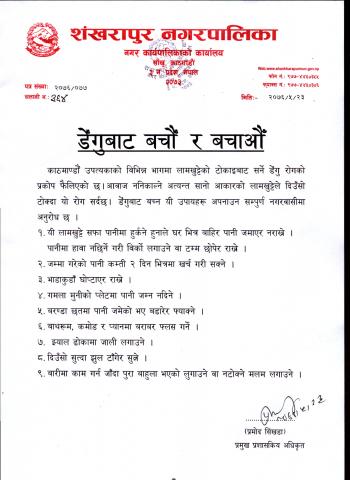 शंखरापुर नगरपालिका
नगर कार्यपालिकाको कार्यालय
साँखु, काठमाडौं
३ नं. प्रदेश, नेपाल
२०७३
पत्र संख्याः २०७६/०७७
चलानी नं.: ३६४
मितिः- २०७६/५/२३
डेंगुबाट बचौं र बचाऔं
काठमाण्डौं उपत्यकाको विभिन्न भागमा लामखुट्टेको टोकाइबाट सर्ने डेंगु रोगको
प्रकोप फैलिएको छ। आवाज ननिकाल्ने अत्यन्त सानो आकारको लामखुट्टेले दिउँसो
टोक्दा यो रोग सर्दछ। डेंगुबाट बच्न यी उपायहरू अपनाउन सम्पुर्ण नगरवासीमा
अनुरोध छ ।
१. यी लामखुट्टे सफा पानीमा हुर्कने हुनाले घर भित्र बाहिर पानी जमाएर नराख्ने ।
पानीमा हावा नछिर्ने गरी बिर्को लगाउने वा टम्म छोपेर राख्ने ।
२. जम्मा गरेको पानी कम्ती २ दिन भित्रमा खर्च गरी सक्ने ।
३. भाडाकुडाँ घोप्टाएर राख्ने ।
४. गमला मुनीको प्लेटमा पानी जम्न नदिने ।
५. बरण्डा छतमा पानी जमेको भए बढारेर फ्याक्ने ।
६. बाथरूम, कमोड र प्यानमा बराबर फ्लस गर्ने ।
७. झ्याल ढोकामा जाली लगाउने ।
८. दिउँसो सुत्दा झुल टाँगेर सुत्ने ।
९. बारीमा काम गर्न जाँदा पुरा बाहुला भएको लुगाउने वा नटोक्ने मलम लगाउने ।
(प्रमोद सिंखडा)
प्रमुख प्रशासकिय अधिकृत